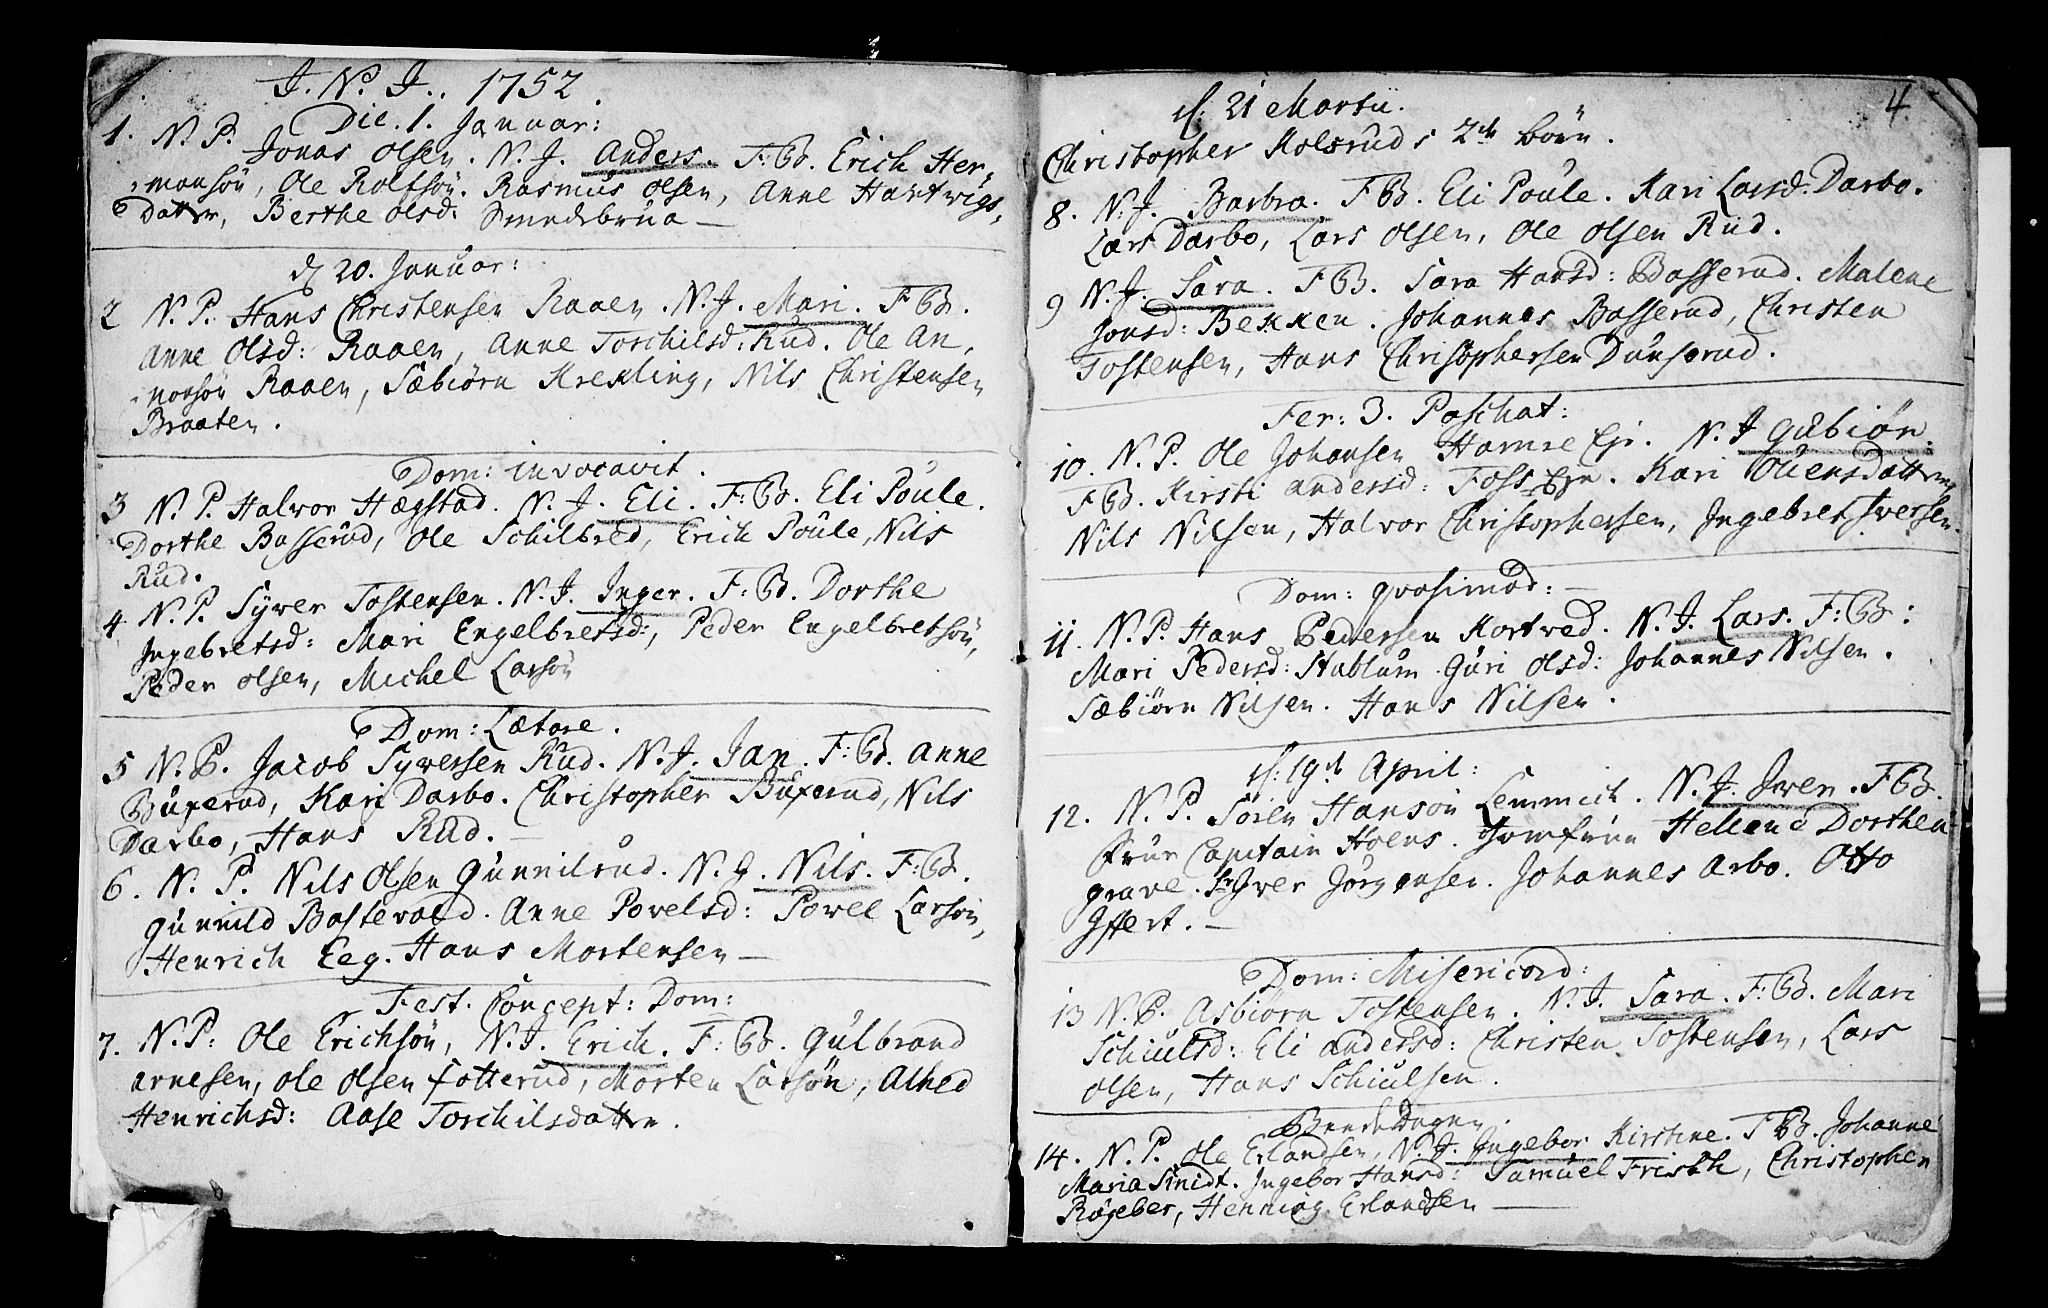 J. N. J. 1752.
Die. 1. Januar:
1. N. P. Jonas Olsen. N. J. Anders. F: B. Erich Her-
mansøn, Ole Rolfsøn. Rasmus Olsen, Anne Hartvigs-
Datter, Berthe Olsd: Smedsbrua —
d 20. Januar:
2 N. P. Hans Christensen Raaen. N. J. Mari. F B.
Anne Olsd: Raaen, Anne Torchilsd: Rud. Ole An,
Raaen, Sæbiørn Krekling, Nils Christensen
Braaten.
Dom: invocavit.
3 N. P. Halvor Hægstad. N. J. Eli. F: B. Eli Poule.
Dorthe Basserud, Ole Schilbred, Erich Poule, Nils
Rud.
4 N. P. Syver Tostensen. N. J. Inger. F: B. Dorthe
Ingebretsd: Mari Engelbretsd:, Peder Engelbretsøn,
Peder Olsen, Michel Larsøn
Dom: Lætare.
5 N. P. Jacob Syversen Rud. N. J. Jan. F: B. Anne
Buxerud, Kari Darbo. Christopher Buxerud, Nils
Darbo, Hans Rud. —
6. N. P. Nils Olsen Gunnilrud. N. J. Nils. F: B.
Gunnild Bastevold. Anne Povelsd: Povel Larsøn,
Henrich Eeg. Hans Mortensen —
Fest. Concept: Dom:
7. N. P: Ole Erichsøn, N. J. Erich. F: B. Gulbrand
Arnesen, Ole Olsen Fotterud, Morten Larsøn, Alhed
Henrichsd: Aase Torchilsdatter.
4
d: 21 Martii.
Christopher Kolsruds 2de børn.
8. N. J. Barbra. F B. Eli Poule. Kari Larsd: Darbo.
Lars Darbo, Lars Olsen, Ole Olsen Rud.
9 N. J. Sara. F B. Sara Hansd: Basserud. Malene
Jonsd: Bekken. Johannes Basserud, Christen
Tostensen, Hans Christophersen Dunserud.
Fer: 3. Paschat:
10. N. P. Ole Johansen Hamre Eje. N. J Gubiør.
F B. Kirsti Andersd: Foss Eje. Kari Ouensdatter
Nils Nilsen, Halvor Christophersen, Ingebret Iversen.
Dom: qvasimod: —
11. N. P. Hans Pedersen Kortved. N. J. Lars. F: B:
Mari Pedersd: Stablum. Guri Olsd: Johannes Nilsen.
Sæbiørn Nilsen. Hans Nilsen.
d: 19de April:
12. N. P. Søren Hansøn Lemmich. N. J. Iver. F B.
Frue Capitain Hoens. Jomfrue Hellene Dorthea
grave. Sr Iver Jørgensen. Johannes Arbo. Otto
Iffert. —
Dom: Misericord:
13 N. P. Asbiørn Tostensen. N. J. Sara. F: B. Mari
Schiulsd: Eli Andersd: Christen Tostensen, Lars
Olsen, Hans Schiulsen.
Beededagen
14. N. P. Ole Erlandsen, N. J. Ingebor Kirstine. F B. Johanne
Maria Smidt. Ingebor Hansd: Samuel Frisch, Christopher
Røgeber, Henning Erlandsen —